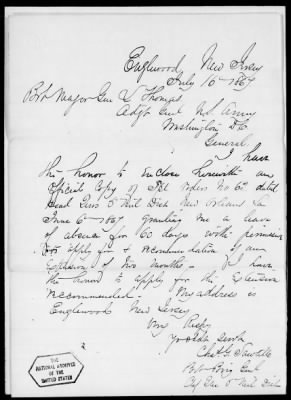 Englewood, New Jersey
July 16th 1867
Bvt Major Gen L Thomas
Adjt Genl U.S. Army
Washington D.C.
General,
I have
the honor to enclose herewith an
Official Copy of Spl Orders No 62 dated
Head Qurs 5 Mil Dist New Orleans La
June 6th 1867 granting me a leave
of absence for 60 days with permission
to apply for & recommendation of an
Extension of two months. I have
the honor to apply for the Extension
recommended. My address is
Englewood New Jersey
Very Respy
Your Obdt Servt
Chas G. Sawtelle
Bvt Brig Genl
5 Mil Dist
THE
NATIONAL ARCHIVES
OF THE
UNITED STATES